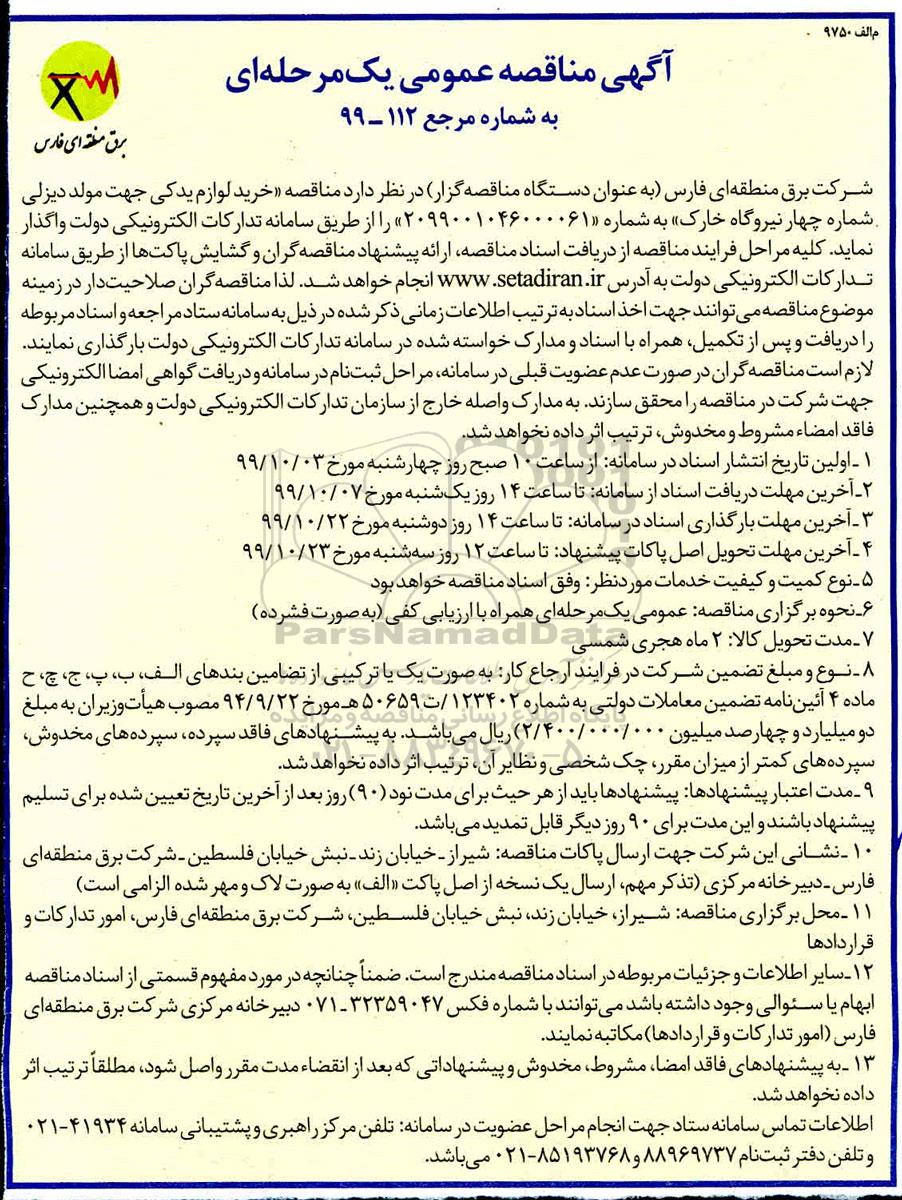 م‌الف ۹۷۵۰
آگهی مناقصه عمومی یک‌مرحله‌ای
به شماره مرجع ۱۱۲ ـ ۹۹
برق منطقه‌ای فارس
شــرکت برق منطقه‌ای فارس (به عنوان دســتگاه مناقصه‌گزار) در نظر دارد مناقصه «خرید لوازم یدکی جهت مولد دیزلی
شماره چهار نیروگاه خارک» به شماره «۲۰۹۹۰۰۱۰۴۶۰۰۰۰۶۱» را از طریق سامانه تدارکات الکترونیکی دولت واگذار
نماید. کلیه مراحل فرایند مناقصه از دریافت اسناد مناقصه، ارائه پیشنهاد مناقصه‌گران و گشایش پاکت‌ها از طریق سامانه
تــدارکات الکترونیکی دولت به آدرس www.setadiran.ir انجام خواهد شــد. لذا مناقصه‌گران صلاحیت‌دار در زمینه
موضوع مناقصه می‌توانند جهت اخذ اسناد به ترتیب اطلاعات زمانی ذکر شده در ذیل به سامانه ستاد مراجعه و اسناد مربوطه
را دریافت و پس از تکمیل، همراه با اسناد و مدارک خواسته شده در سامانه تدارکات الکترونیکی دولت بارگذاری نمایند.
لازم است مناقصه‌گران در صورت عدم عضویت قبلی در سامانه، مراحل ثبت‌نام در سامانه و دریافت گواهی امضا الکترونیکی
جهت شرکت در مناقصه را محقق سازند. به مدارک واصله خارج از سازمان تدارکات الکترونیکی دولت و همچنین مدارک
فاقد امضاء مشروط و مخدوش، ترتیب اثر داده نخواهد شد.
۱ ـ اولین تاریخ انتشار اسناد در سامانه: از ساعت ۱۰ صبح روز چهارشنبه مورخ ۹۹/۱۰/۰۳
۲ـ آخرین مهلت دریافت اسناد از سامانه: تا ساعت ۱۴ روز یک‌شنبه مورخ ۹۹/۱۰/۰۷
۳ ـ آخرین مهلت بارگذاری اسناد در سامانه: تا ساعت ۱۴ روز دوشنبه مورخ ۹۹/۱۰/۲۲
۴ ـ آخرین مهلت تحویل اصل پاکات پیشنهاد: تا ساعت ۱۲ روز سه‌شنبه مورخ ۹۹/۱۰/۲۳
۵ ـ نوع کمیت و کیفیت خدمات موردنظر: وفق اسناد مناقصه خواهد بود
۶ـ نحوه برگزاری مناقصه: عمومی یک‌مرحله‌ای همراه با ارزیابی کفی (به صورت فشرده)
ParsNamadData
۷ ـ مدت تحویل کالا: ۲ ماه هجری شمسی
۸ ـ نــوع و مبلغ تضمین شــرکت در فرایند ارجاع کار: به صورت یک یا ترکیبی از تضامین بندهای الــف، ب، پ، ج، چ، ح
ماده ۴ آئین‌نامه تضمین معاملات دولتی به شماره ۱۲۳۴۰۲/ت ۵۰۶۵۹ هـ مورخ ۹۴/۹/۲۲ مصوب هیأت‌وزیران به مبلغ
پایگاه اطلاع رسانی مناقصه و مزایده
دو میلیارد و چهارصد میلیون (۲/۴۰۰/۰۰۰/۰۰۰) ریال می‌باشــد. به پیشــنهادهای فاقد سپرده، سپرده‌های مخدوش،
۰۲۱-۸۸۳۴۹۶۷۰-۵
سپرده‌های کمتر از میزان مقرر، چک شخصی و نظایر آن، ترتیب اثر داده نخواهد شد.
۹ ـ مدت اعتبار پیشنهادها: پیشنهادها باید از هر حیث برای مدت نود (۹۰) روز بعد از آخرین تاریخ تعیین شده برای تسلیم
پیشنهاد باشند و این مدت برای ۹۰ روز دیگر قابل تمدید می‌باشد.
۱۰ ـ نشــانی این شرکت جهت ارسال پاکات مناقصه: شیراز ـ خیابان زند ـ نبش خیابان فلسطین ـ شرکت برق منطقه‌ای
فارس ـ دبیرخانه مرکزی (تذکر مهم، ارسال یک نسخه از اصل پاکت «الف» به صورت لاک و مهر شده الزامی است)
۱۱ ـ محل برگزاری مناقصه: شــیراز، خیابان زند، نبش خیابان فلســطین، شــرکت برق منطقه‌ای فارس، امور تدارکات و
قراردادها
۱۲ـ سایر اطلاعات و جزئیات مربوطه در اسناد مناقصه مندرج است. ضمناً چنانچه در مورد مفهوم قسمتی از اسناد مناقصه
ابهام یا سئوالی وجود داشته باشد می‌توانند با شماره فکس ۳۲۳۵۹۰۴۷ ـ ۰۷۱ دبیرخانه مرکزی شرکت برق منطقه‌ای
فارس (امور تدارکات و قراردادها) مکاتبه نمایند.
۱۳ ـ به پیشنهادهای فاقد امضا، مشروط، مخدوش و پیشنهاداتی که بعد از انقضاء مدت مقرر واصل شود، مطلقاً ترتیب اثر
داده نخواهد شد.
اطلاعات تماس سامانه ستاد جهت انجام مراحل عضویت در سامانه: تلفن مرکز راهبری و پشتیبانی سامانه ۴۱۹۳۴-۰۲۱
و تلفن دفتر ثبت‌نام ۸۸۹۶۹۷۳۷ و ۸۵۱۹۳۷۶۸-۰۲۱ می‌باشد.